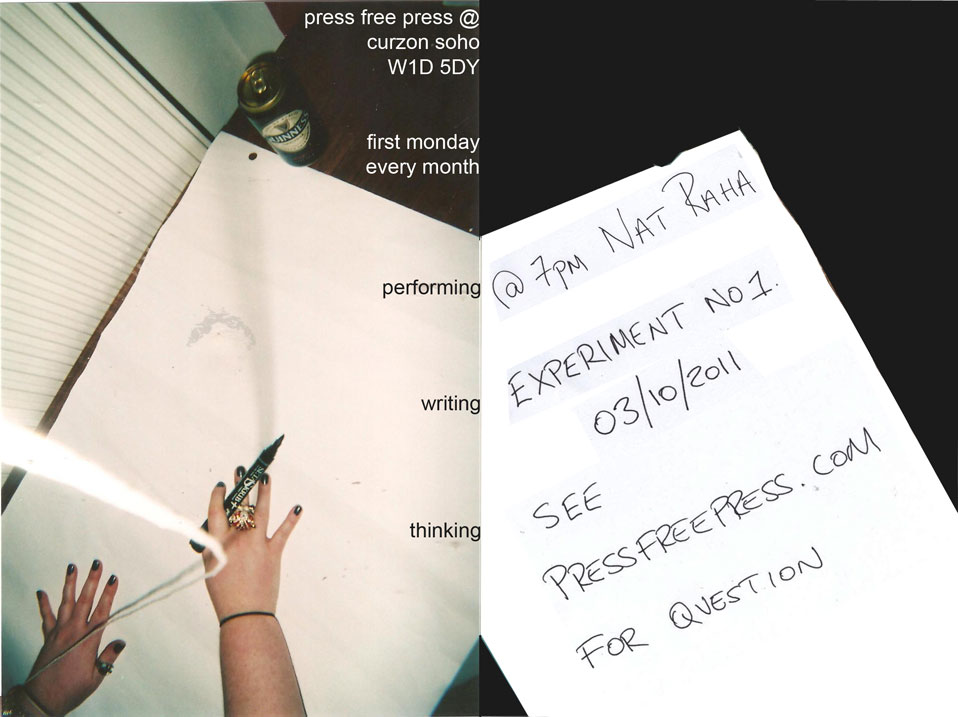 press free press @
curzon soho
W1D 5DY
first monday
every month
performing
writing
thinking
GUINNESS
@ 7PM NAT RAHA
EXPERIMENT NO 1.
03/10/2011
SEE
PRESSFREEPRESS.COM
FOR QUESTION